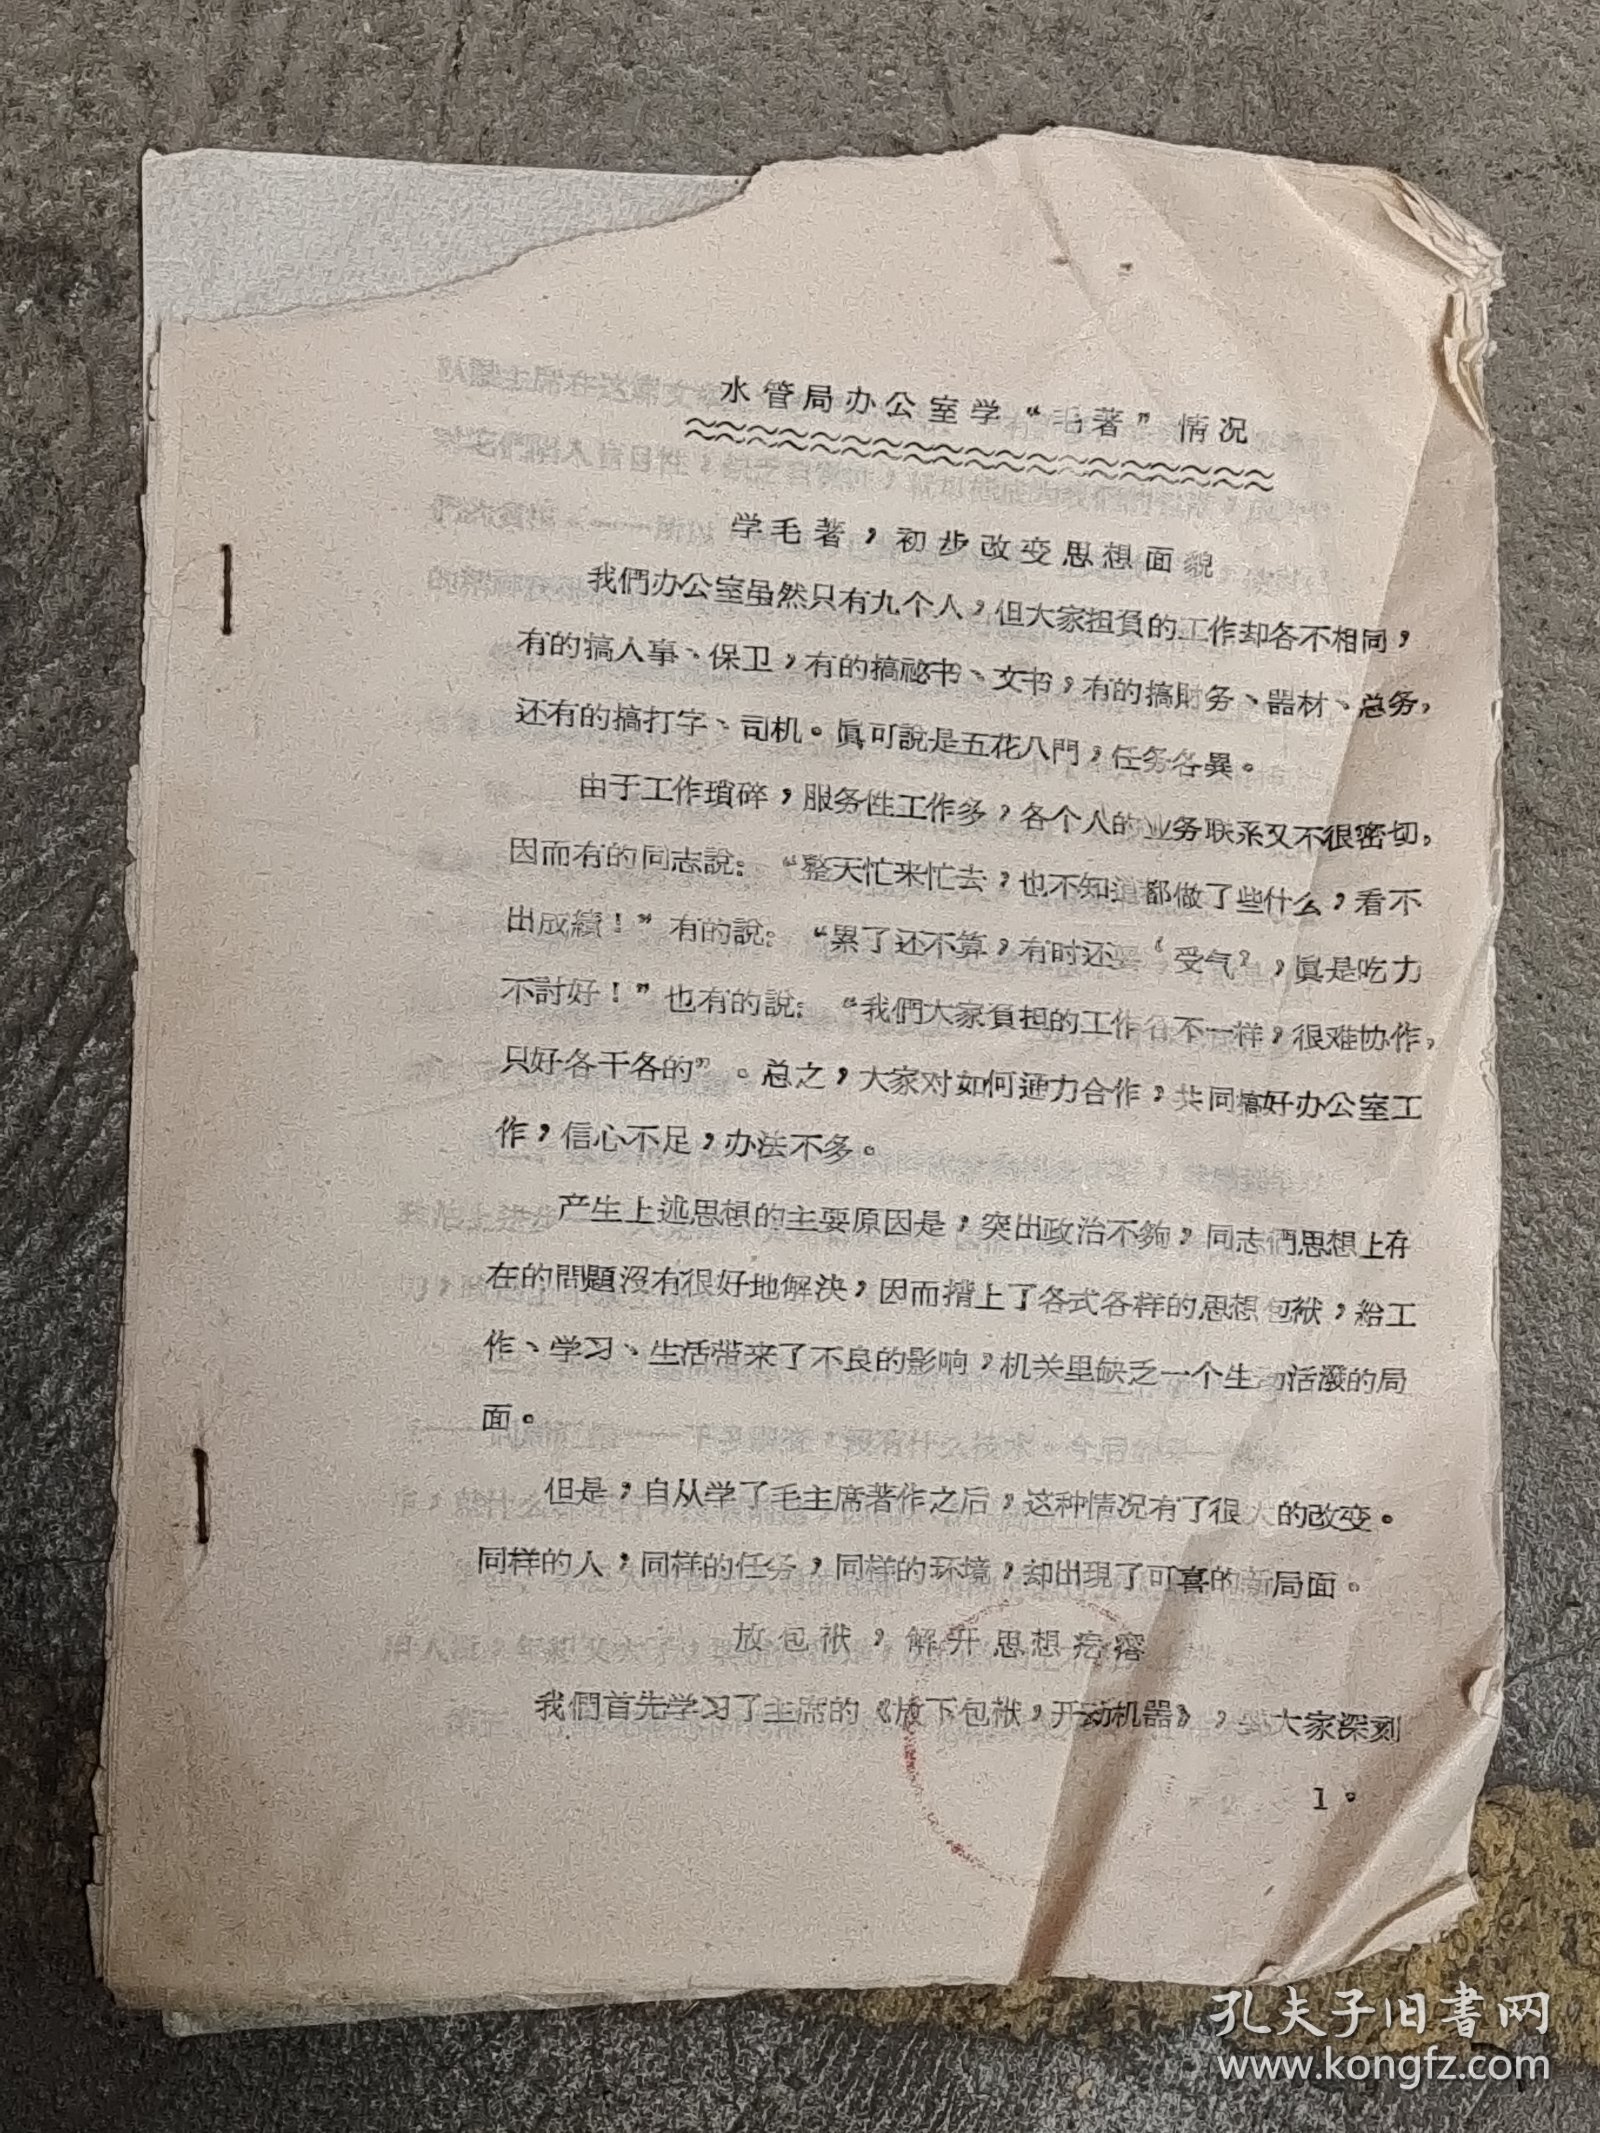 水管局办公室学“毛著”情况
学毛著，初步改变思想面貌
我們办公室虽然只有九个人，但大家担負的工作却各不相同，
有的搞人事、保卫，有的搞祕书、文书，有的搞財务、器材、总务，
还有的搞打字、司机。眞可說是五花八門，任务各異。
由于工作瑣碎，服务性工作多，各个人的业务联系又不很密切，
因而有的同志說：“整天忙来忙去，也不知道都做了些什么，看不
出成績！”有的說：“累了还不算，有时还要‘受气’，眞是吃力
不討好！”也有的說：“我們大家負担的工作各不一样，很难协作，
只好各干各的”。总之，大家对如何通力合作，共同搞好办公室工
作，信心不足，办法不多。
产生上述思想的主要原因是，突出政治不夠，同志們思想上存
在的問題沒有很好地解决，因而揹上了各式各样的思想包袱，給工
作、学习、生活带来了不良的影响，机关里缺乏一个生动活潑的局
面。
但是，自从学了毛主席著作之后，这种情况有了很大的改变。
同样的人，同样的任务，同样的环境，却出現了可喜的新局面。
放包袱，解开思想疙瘩
我們首先学习了主席的《放下包袱，开动机器》，大家深刻
1。
孔夫子旧書网
www.kongfz.com